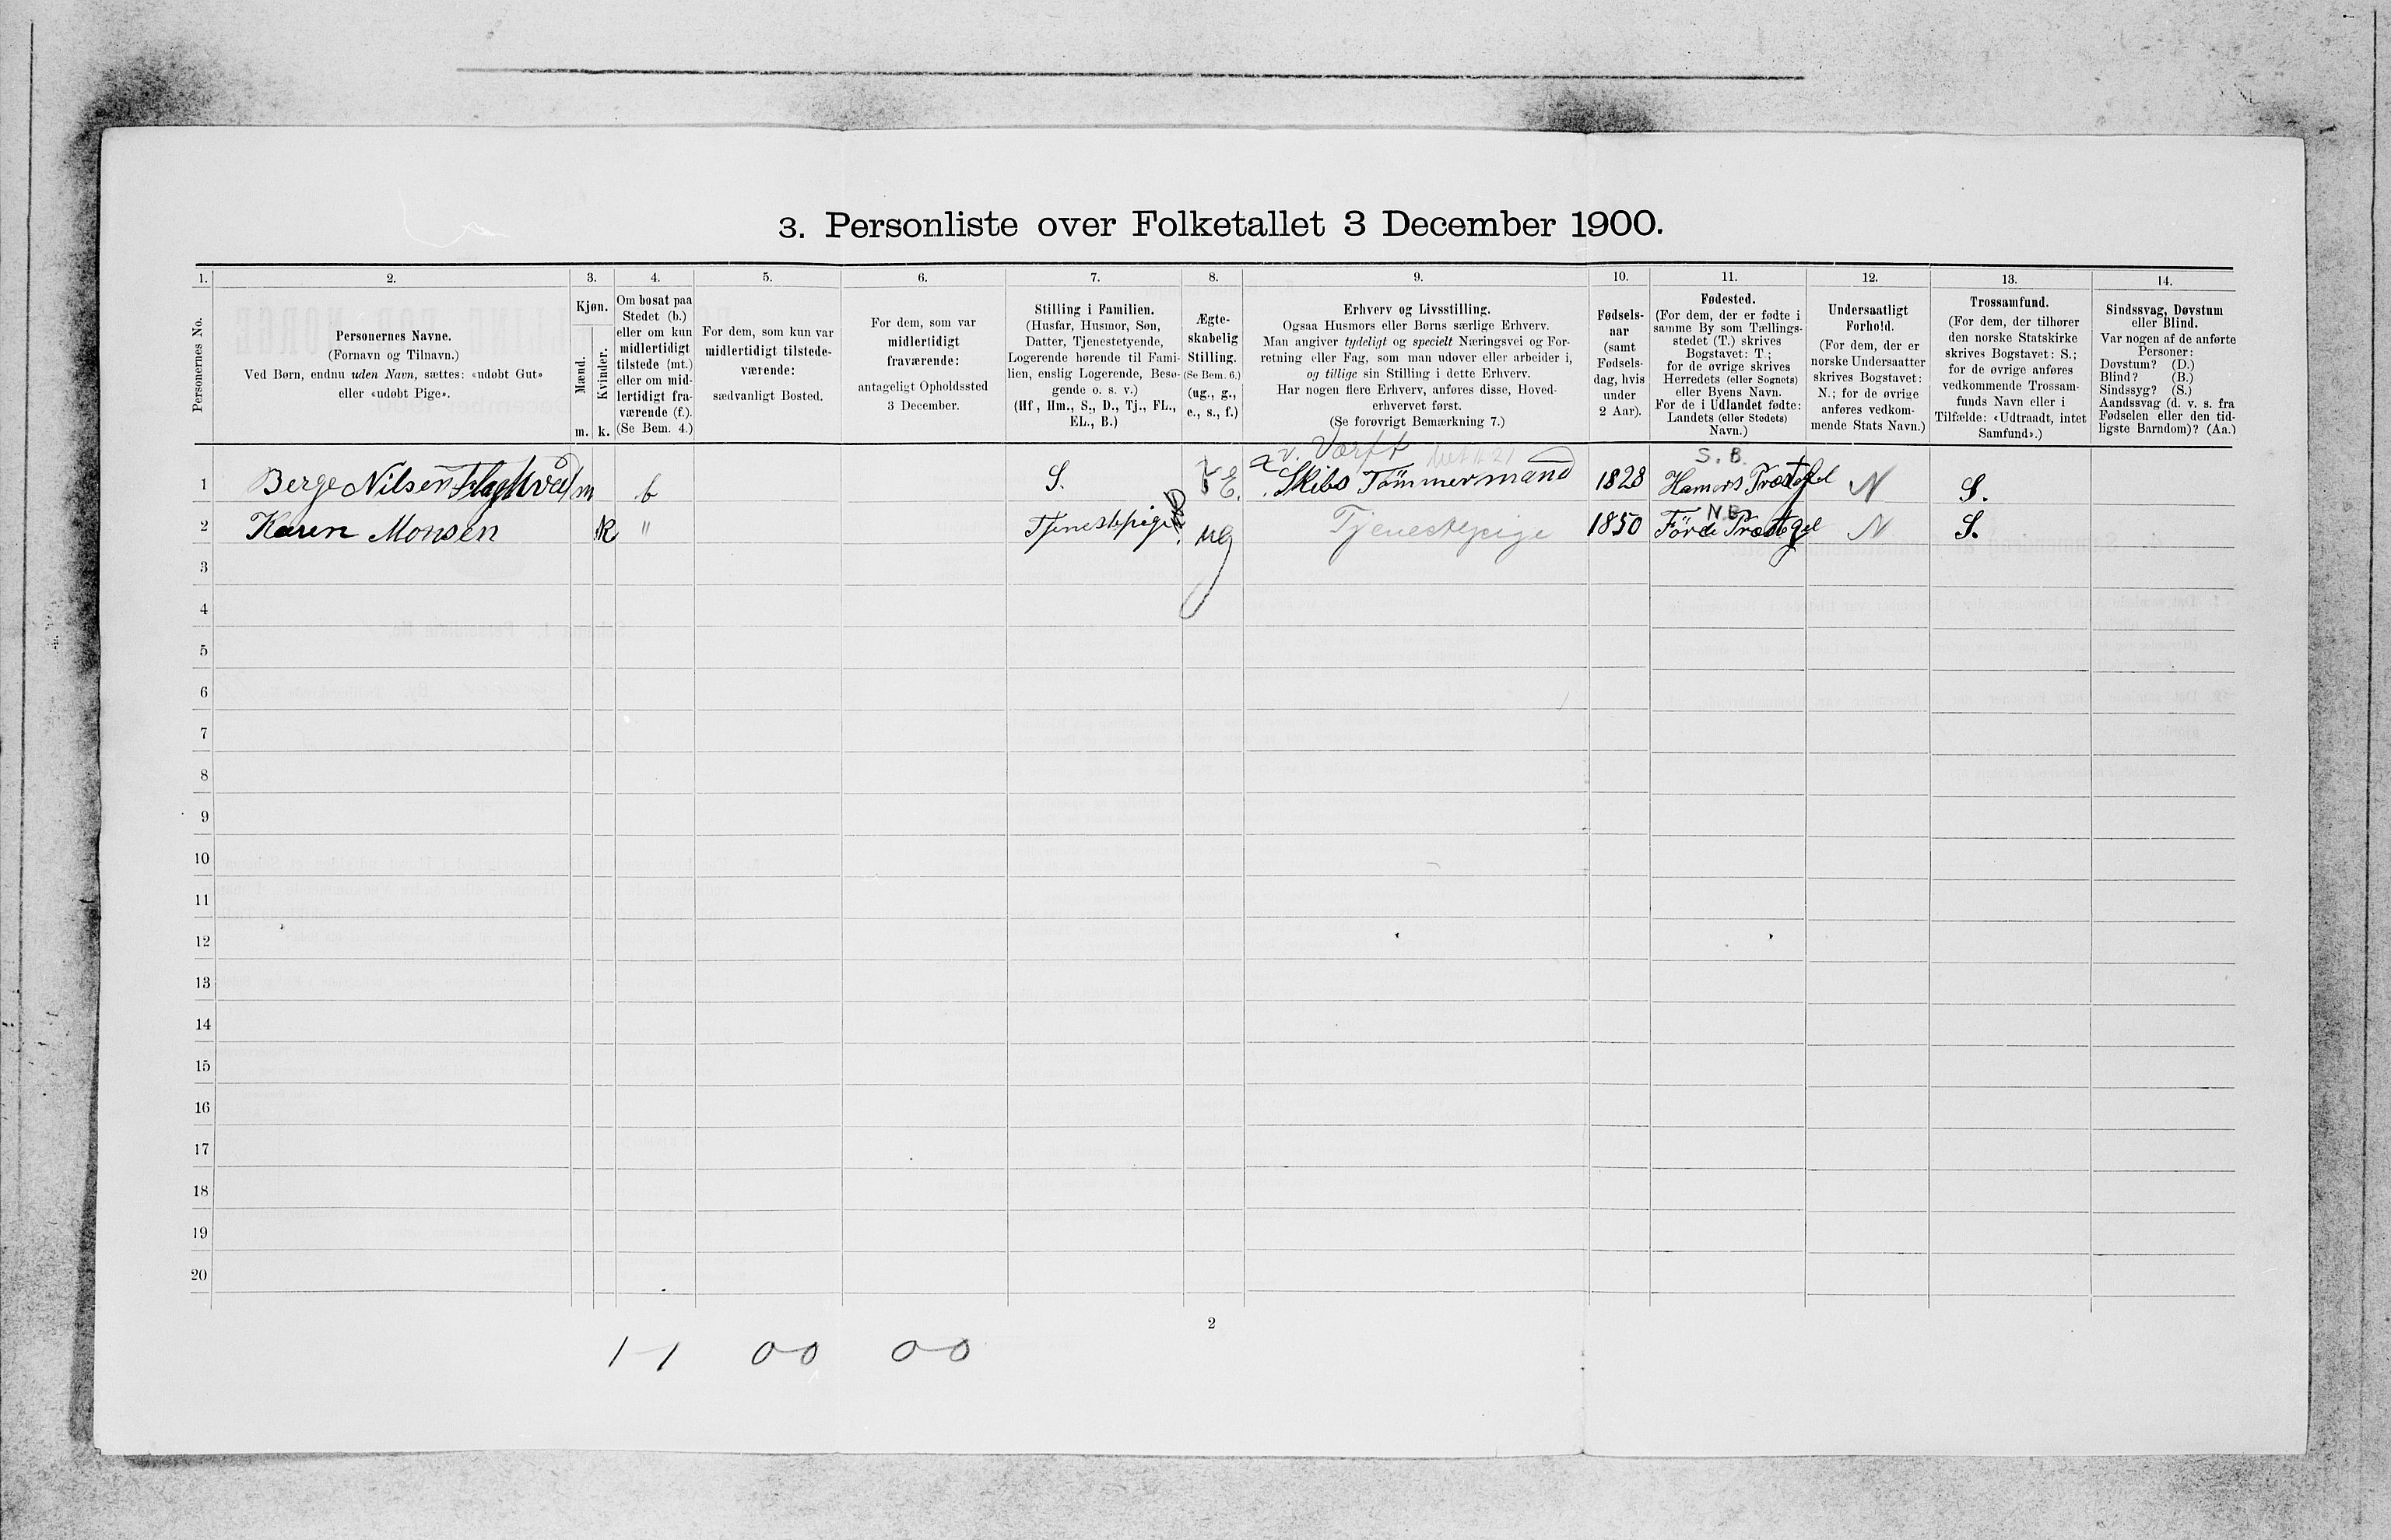 3. Personliste over Folketallet 3 December 1900.
1. 2. 3. 4. 5. 6. 7. 8. 9. 10. 11. 12. 13. 14.
Personernes No.
Personernes Navne.
(Fornavn og Tilnavn.)
Ved Børn, endnu uden Navn, sættes: «udøbt Gut»
eller «udøbt Pige».
Kjøn.
Mænd.
Kvinder.
m. k.
Om bosat paa
Stedet (b.)
eller om kun
midlertidigt
tilstede (mt.)
eller om mid-
lertidigt fra-
værende (f.).
(Se Bem. 4.)
For dem, som kun var
midlertidigt tilstede-
værende:
sædvanligt Bosted.
For dem, som var
midlertidigt
fraværende:
antageligt Opholdssted
3 December.
Stilling i Familien.
(Husfar, Husmor, Søn,
Datter, Tjenestetyende,
Logerende hørende til Fami-
lien, enslig Logerende, Besø-
gende o. s. v.)
(Hf., Hm., S., D., Tj., FL.,
EL., B.)
Ægte-
skabelig
Stilling.
(Se Bem. 6.)
(ug., g.,
e., s., f.)
Erhverv og Livsstilling.
Ogsaa Husmors eller Børns særlige Erhverv.
Man angiver tydeligt og specielt Næringsvei og For-
retning eller Fag, som man udover eller arbeider i,
og tillige sin Stilling i dette Erhverv.
Har nogen flere Erhverv, anføres disse, Hoved-
erhvervet først.
(Se forøvrigt Bemærkning 7.)
Fødsels-
aar
(samt
Fødsels-
dag, hvis
under
2 Aar).
Fødested.
(For dem, der er fødte i
samme By som Tællings-
stedet (T.) skrives
Bogstavet: T.;
for de øvrige skrives
Herredets (eller Sognets)
eller Byens Navn.
For de i Udlandet fødte:
Landets (eller Stedets)
Navn.)
Undersaatligt
Forhold.
(For dem, der er
norske Undersaatter
skrives Bogstavet:
N.; for de øvrige
anføres vedkom-
mende Stats Navn.)
Trossamfund.
(For dem, der tilhører
den norske Statskirke
skrives Bogstavet: S.;
for de øvrige anføres
vedkommende Trossam-
funds Navn eller i
Tilfælde: «Udtraadt, intet
Samfund».)
Sindssvag, Døvstum
eller Blind.
Var nogen af de anførte
Personer:
Døvstum? (D.)
Blind? (B.)
Sindssyg? (S.)
Aandssvag (d. v. s. fra
Fødselen eller den tid-
ligste Barndom)? (Aa.)
v. Værft S. B.
1 Berge Nilsen m b S. E. Skibs Tömmermand 1828 N S.
N.B.
2 Karen Monsen k " Tjenestepige ug Tjenestepige 1850 Förde Præstegel N S.
3
4
5
6
7
8
9
10
11
12
13
14
15
16
17
18
19
20
2
1-1 0-0 0-0